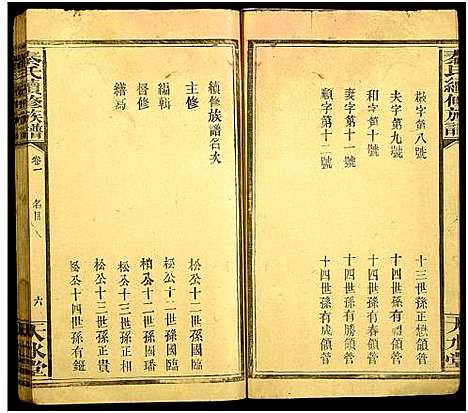 秦氏續修族譜
天水堂
枝字第八號 十三世孫正懋領管
夫字第九號 十四世孫有禮領管
和字第十號 十四世孫有春領管
妻字第十一號 十四世孫有勝領管
順字第十二號 十四世孫有成領管
續修族譜名次
主修 松公十二世孫國臨
編輯 松公十二世孫國臨
柏公十二世孫國璠
督修 松公十三世孫正貴
繕寫 松公十四世孫有鈕
秦氏續修族譜
卷一
名目
六
天水堂